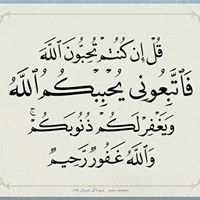 قُلْ إِن كُنتُمْ تُحِبُّونَ ٱللَّهَ
فَٱتَّبِعُونِى يُحْبِبْكُمُ ٱللَّهُ
وَيَغْفِرْ لَكُمْ ذُنُوبَكُمْ ۗ
وَٱللَّهُ غَفُورٌ رَّحِيمٌ
سورة آل عمران